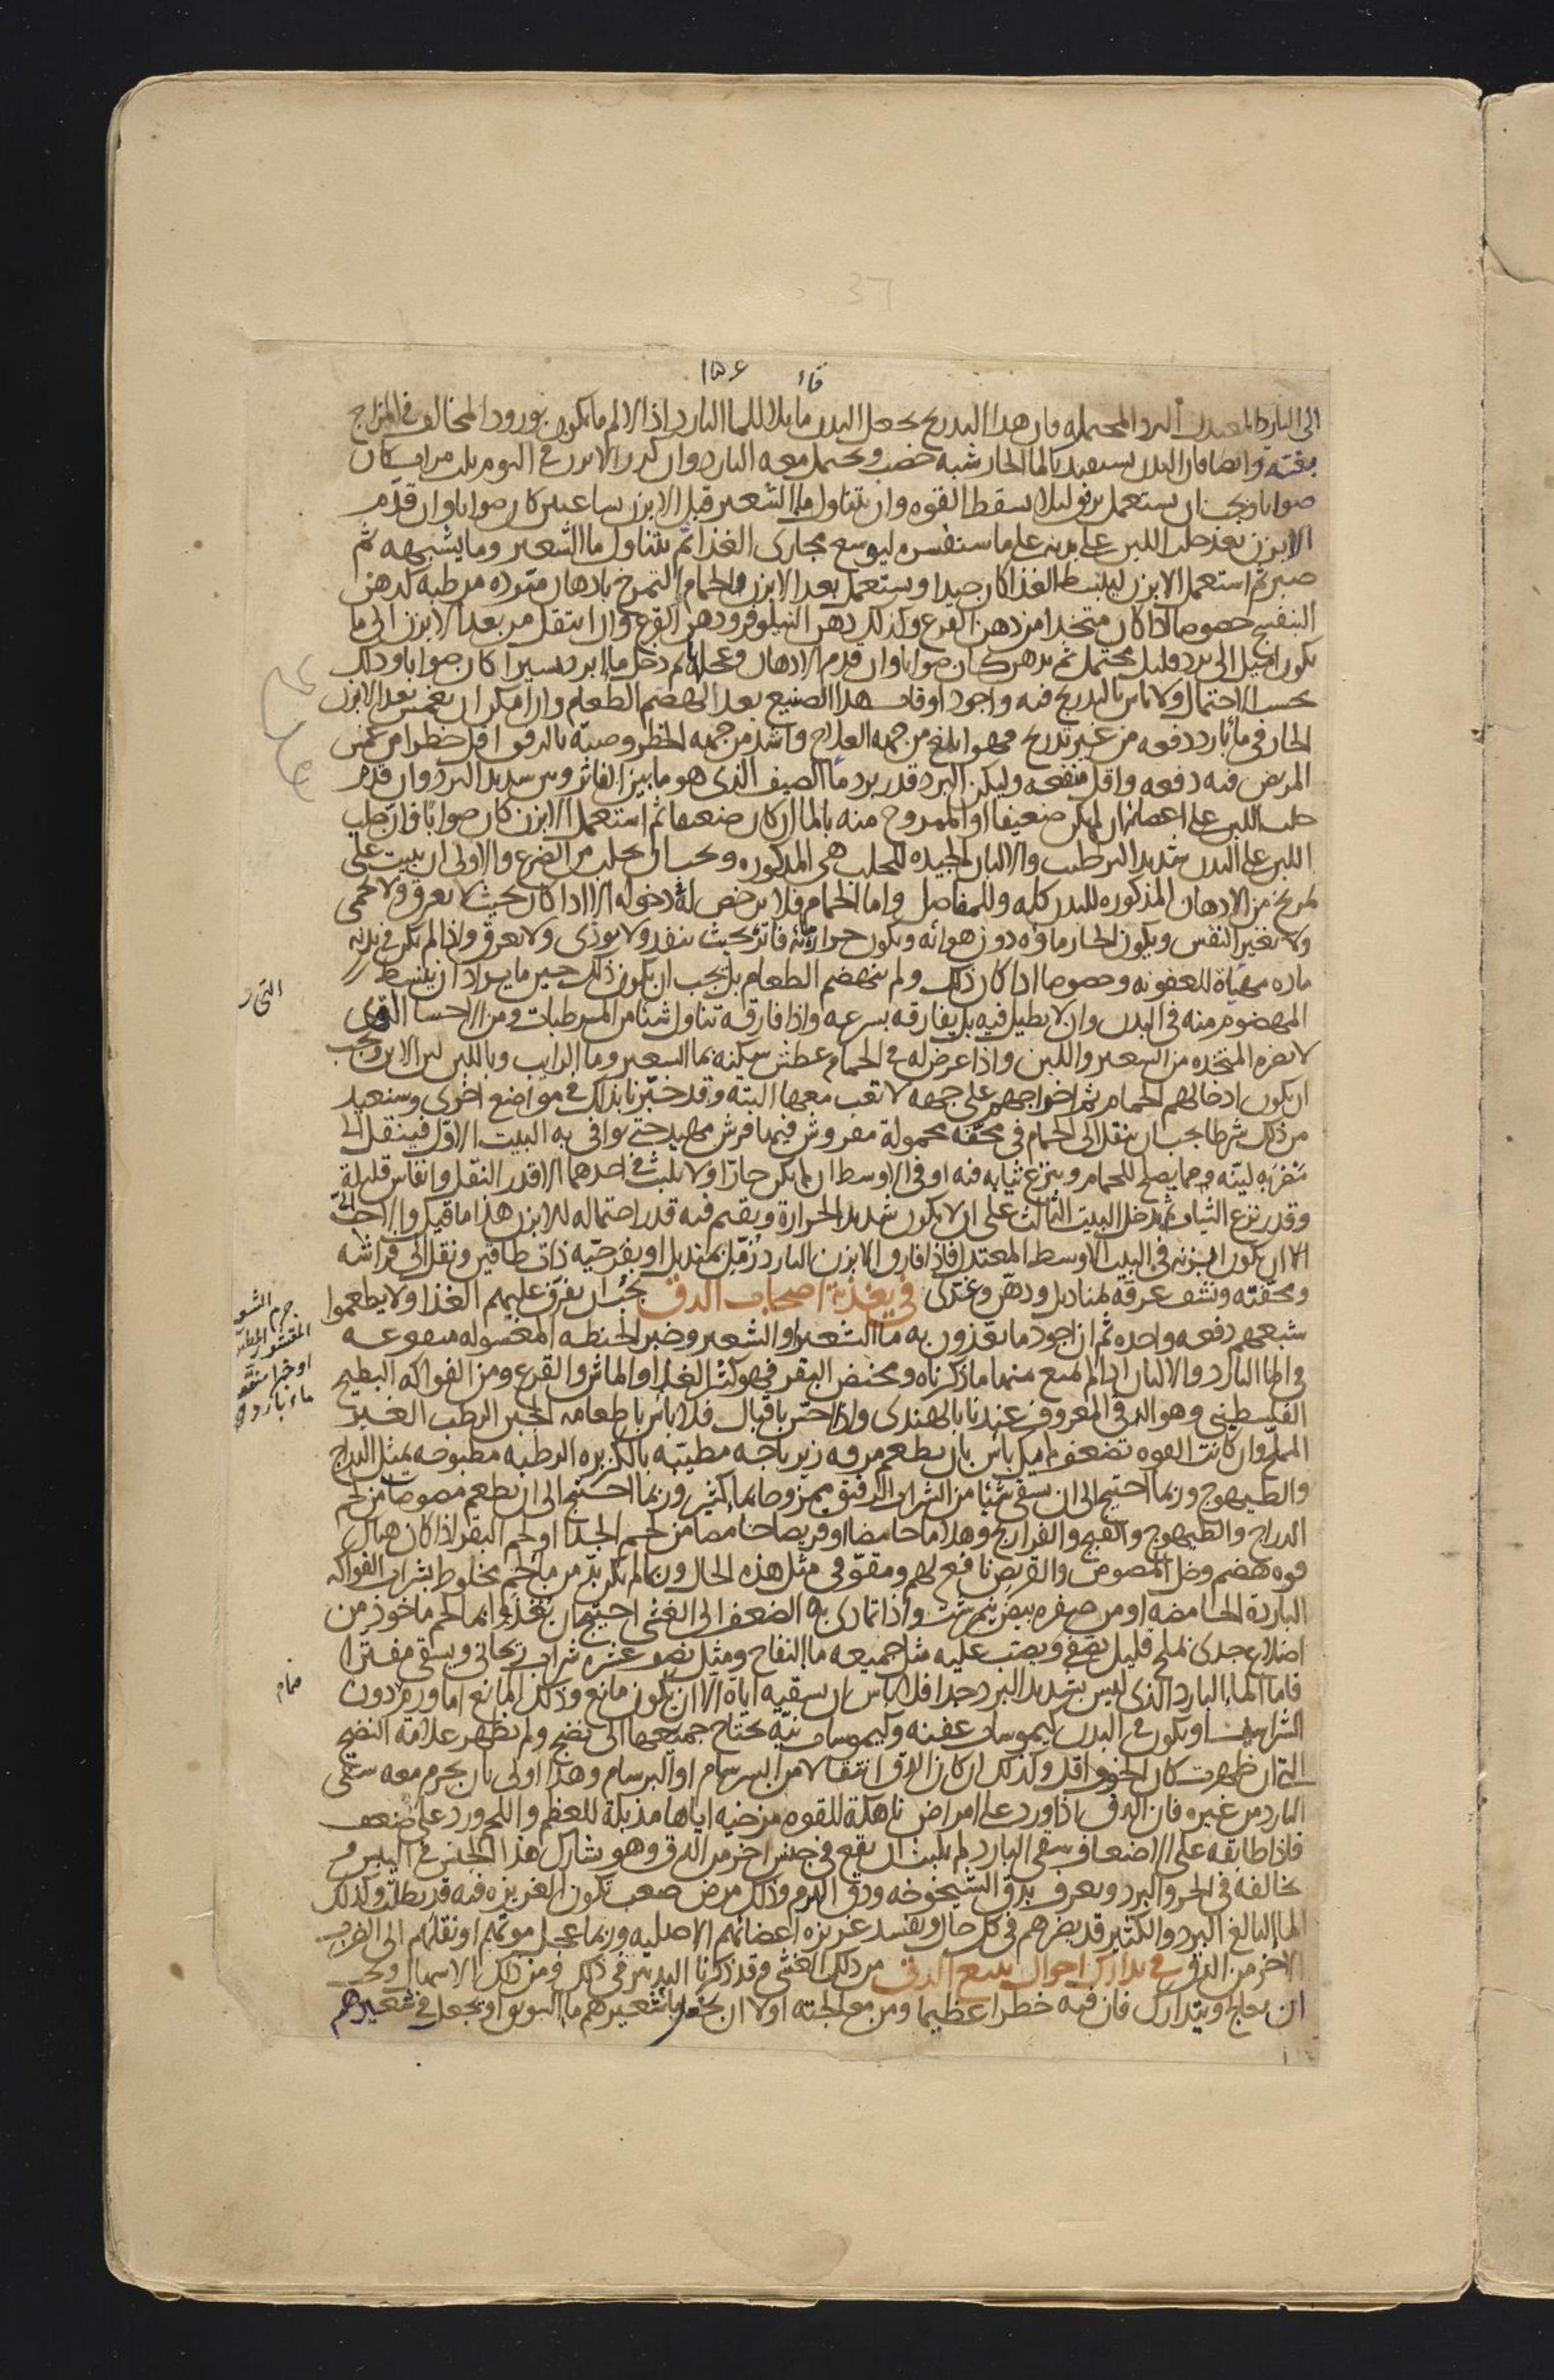 ١٥٤
الى البارد المعتدل البرد المحتمله فان هذا التدريج يجعل البدن قابلا للماء البارد اذ الالم ما يكون بورود المخالف في المزاج
بغتة وايضا فان البدن يستفيد بالماء الحار شبه خصب ويحتمل معه البارد وان كرر الابزن في اليوم ثلث مرات كان
صوابا ويجب ان يستعمل برفق ليلا يسقط القوه وان يتناول ما الشعير قبل الابزن ساعتين كان صوابا وان قدم
الابزن بعد حلب اللبن على بدنه على ما سنفسره ليوسع مجارى الغذا ثم يتناول ما الشعير وما يشبهه ثم
صبر ثم استعمل الابزن لينبسط الغذا كان جيدا ويستعمل بعد الابزن والحمام التمرخ بادهان مبرده مرطبه كدهن
البنفسج خصوصا اذا كان متخذا من دهن القرع وكذلك دهن النيلوفر ودهن القرع وان انتقل من بعد الابزن الى ما
يكون اميل الى برد قليل محتمل ثم يدهن كان صوابا وان قدم الادهان ثم دخل ما ابرد يسيرا كان صوابا وذلك
بحسب الاحتمال ولا باس بالتدريج فيه واجود اوقات هذا الصنيع بعد الهضم الطعام وان امكن ان يغمس بعد الابزن
الحار في ماء بارد دفعه من غير تدريج فهو ابلغ من جهه العلاج واشد من جهه الخطر وصبه بالرفق اقل خطرا من غمس
المريض فيه دفعه واقل منفعه وليكن البرد قدر برد ماء الصيف الذى هو ما بين الفاتر وبين شديد البرد وان قدم
حلب اللبن على اعضائه ان لم يكن ضعيفا او الممزوج منه بالماء ان كان ضعيفا ثم استعمل الابزن كان صوابا فان حلب
اللبن على البدن شديد الترطيب والالبان الجيده للحلب هى المذكوره ويجب ان يحلب من الضرع والاولى ان يبيت على
تمريخ من الادهان المذكوره للبدن كله وللمفاصل واما الحمام فلا يرخص له دخوله الا اذا كان بحيث لا يعرق ولا يحمى
ولا يغير النفس ويكون الحار ماؤه دون هوائه ويكون حراره مائه فاتره بحيث ينفد ولا يوذى ولا يعرق واذا لم يكن في بدنه
ماده مهياه للعفونه وخصوصا اذا كان ذلك ولم ينهضم الطعام بل يجب ان يكون ذلك حين ما يراد ان ينبسط
المهضوم منه في البدن وان لا يطيل فيه بل يفارقه بسرعه واذا فارقه تناول شيئا من المرطبات ومن الاحسا التى
لا تضره المتخذه من الشعير واللبن واذا عرض له في الحمام عطش سكنه بما الشعير وما الرايب وباللبن لبن الاتن ويجب
ان يكون ادخالهم الحمام ثم اخراجهم على جهه لا تعب معها البته وقد خبرنا بذلك في مواضع اخرى وسنعيد
من ذلك شرطا يجب ان ينقل الى الحمام في محفه محمولة مفروش فيها فرش مهيد حتى يوافى به البيت الاول فينقل الى
مضربه لينه مما يصلح للحمام وينزع ثيابه فيه او في الاوسط ان لم يكن حارا ولا يلبث في احدهما الا قدر النقل وانفاس قليلة
وقدر نزع الثياب ثم يدخل البيت الثالث على ان لا يكون شديد الحرارة ويقيم فيه قدر احتماله للابزن هذا ما قيل والاحب الى
الا ان يكون ابزنه في البيت الاوسط المعتدل فاذا فارق الابزن البارد زمل بمنديل او بفرجيه ذات طاقين ونقل الى فراشه
ومحفته ونشف عرقه بمناديل ودهن وغذى في تغذية اصحاب الدق يجب ان يفرق عليهم الغذا ولا يطعموا
شبعهم دفعه واحده ثم ان اجود ما يغذون به ما الشعير او الشعير وخبز الحنطه المغسوله منقوعه
في الماء البارد والالبان اذا لم يمنع منها ما ذكرناه ومخيض البقر فهو كثير الغذا والماش والقرع ومن الفواكه البطيخ
الفلسطيني وهو الرقي المعروف عندنا بالهندى واذا احس باقبال فلا بأس باطعامه الجبن الرطب الغير
المملح وان كانت القوه تضعف لم يكن بأس بان يطعم مرقه زيرباجه مطيبه بالكزبره الرطبه مطبوخه بمثل الدراج
والطيهوج وربما احتيج الى ان يسقى شيئا من الشراب الرقيق ممزوجا بما كثير وربما احتيج الى ان يطعم مصوصا من لحم
الدراج والطيهوج والقبج والفراريج وهلاما حامضا او قريصا حامضا من لحم الجدا او لحم البقر اذا كان هناك
قوه هضم وخل المصوص والقريص نافع لهم ومقو في مثل هذه الحال وربما لم يكن بد من ماء لحم مخلوط بشراب الفواكه
الباردة الحامضه او من صفره بيض نيم برشت واذا تمادى به الضعف الى الغشى احتيج ان يغذوا بما لحم ماخوذ من
اضلاع جدى بملح قليل يصفى ويصب عليه مثل جميعه ما التفاح ومثل نصف عشره شراب ريحانى ويسقى مفترا
فاما الماء البارد الذى ليس بشديد البرد جدا فلا باس ان يسقيه اياه الا ان يكون مانع وذلك المانع اما ورم دون
الشراسيف او يكون في البدن كيموسات عفنه وكيموسات نيه يحتاج جميعها الى نضج ولم تظهر علامة النضج
التى ان ظهرت كان الخوف اقل وكذلك ان كان الدق انتقالا من السرسام او البرسام وهذا اولى بان يحرم معه سقى
البارد من غيره فان الدق اذا ورد على امراض ناهكة للقوه مرخيه اياها مذبلة للعظم واللحم ورد على ضعف
فاذا طابقه على الاضعاف سقى البارد لم يلبث ان يقع في جنس اخر من الدق وهو يشارك هذا الجنس في اليبس و
يخالفه في الحر والبرد ويعرف بدق الشيخوخه ودق الهرم وذلك مرض صعب تكون الغريزه فيه قد بطلت وكذلك
الماء البالغ البرد والكثير قد يضرهم في كل حال ويفسد غريزه اعضائهم الاصليه وربما عجل موتهم او نقلهم الى الضرب
الاخر من الدق في تدارك احوال يتبع الدق من ذلك الغشى وقد ذكرنا التدبير في ذلك ومن ذلك الاسهال ويجب
ان يعالج ويتدارك فان فيه خطرا عظيما ومن معالجته اولا ان يخلط بشعيرهم ما السويق او يجعل في شعيرهم